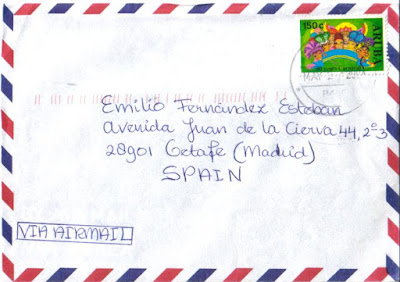 150c
ARUBA
Emilio Fernández Esteban
Avenida Juan de la Cierva 44, 2º3
28901 Getafe (Madrid)
SPAIN
VIA AIRMAIL